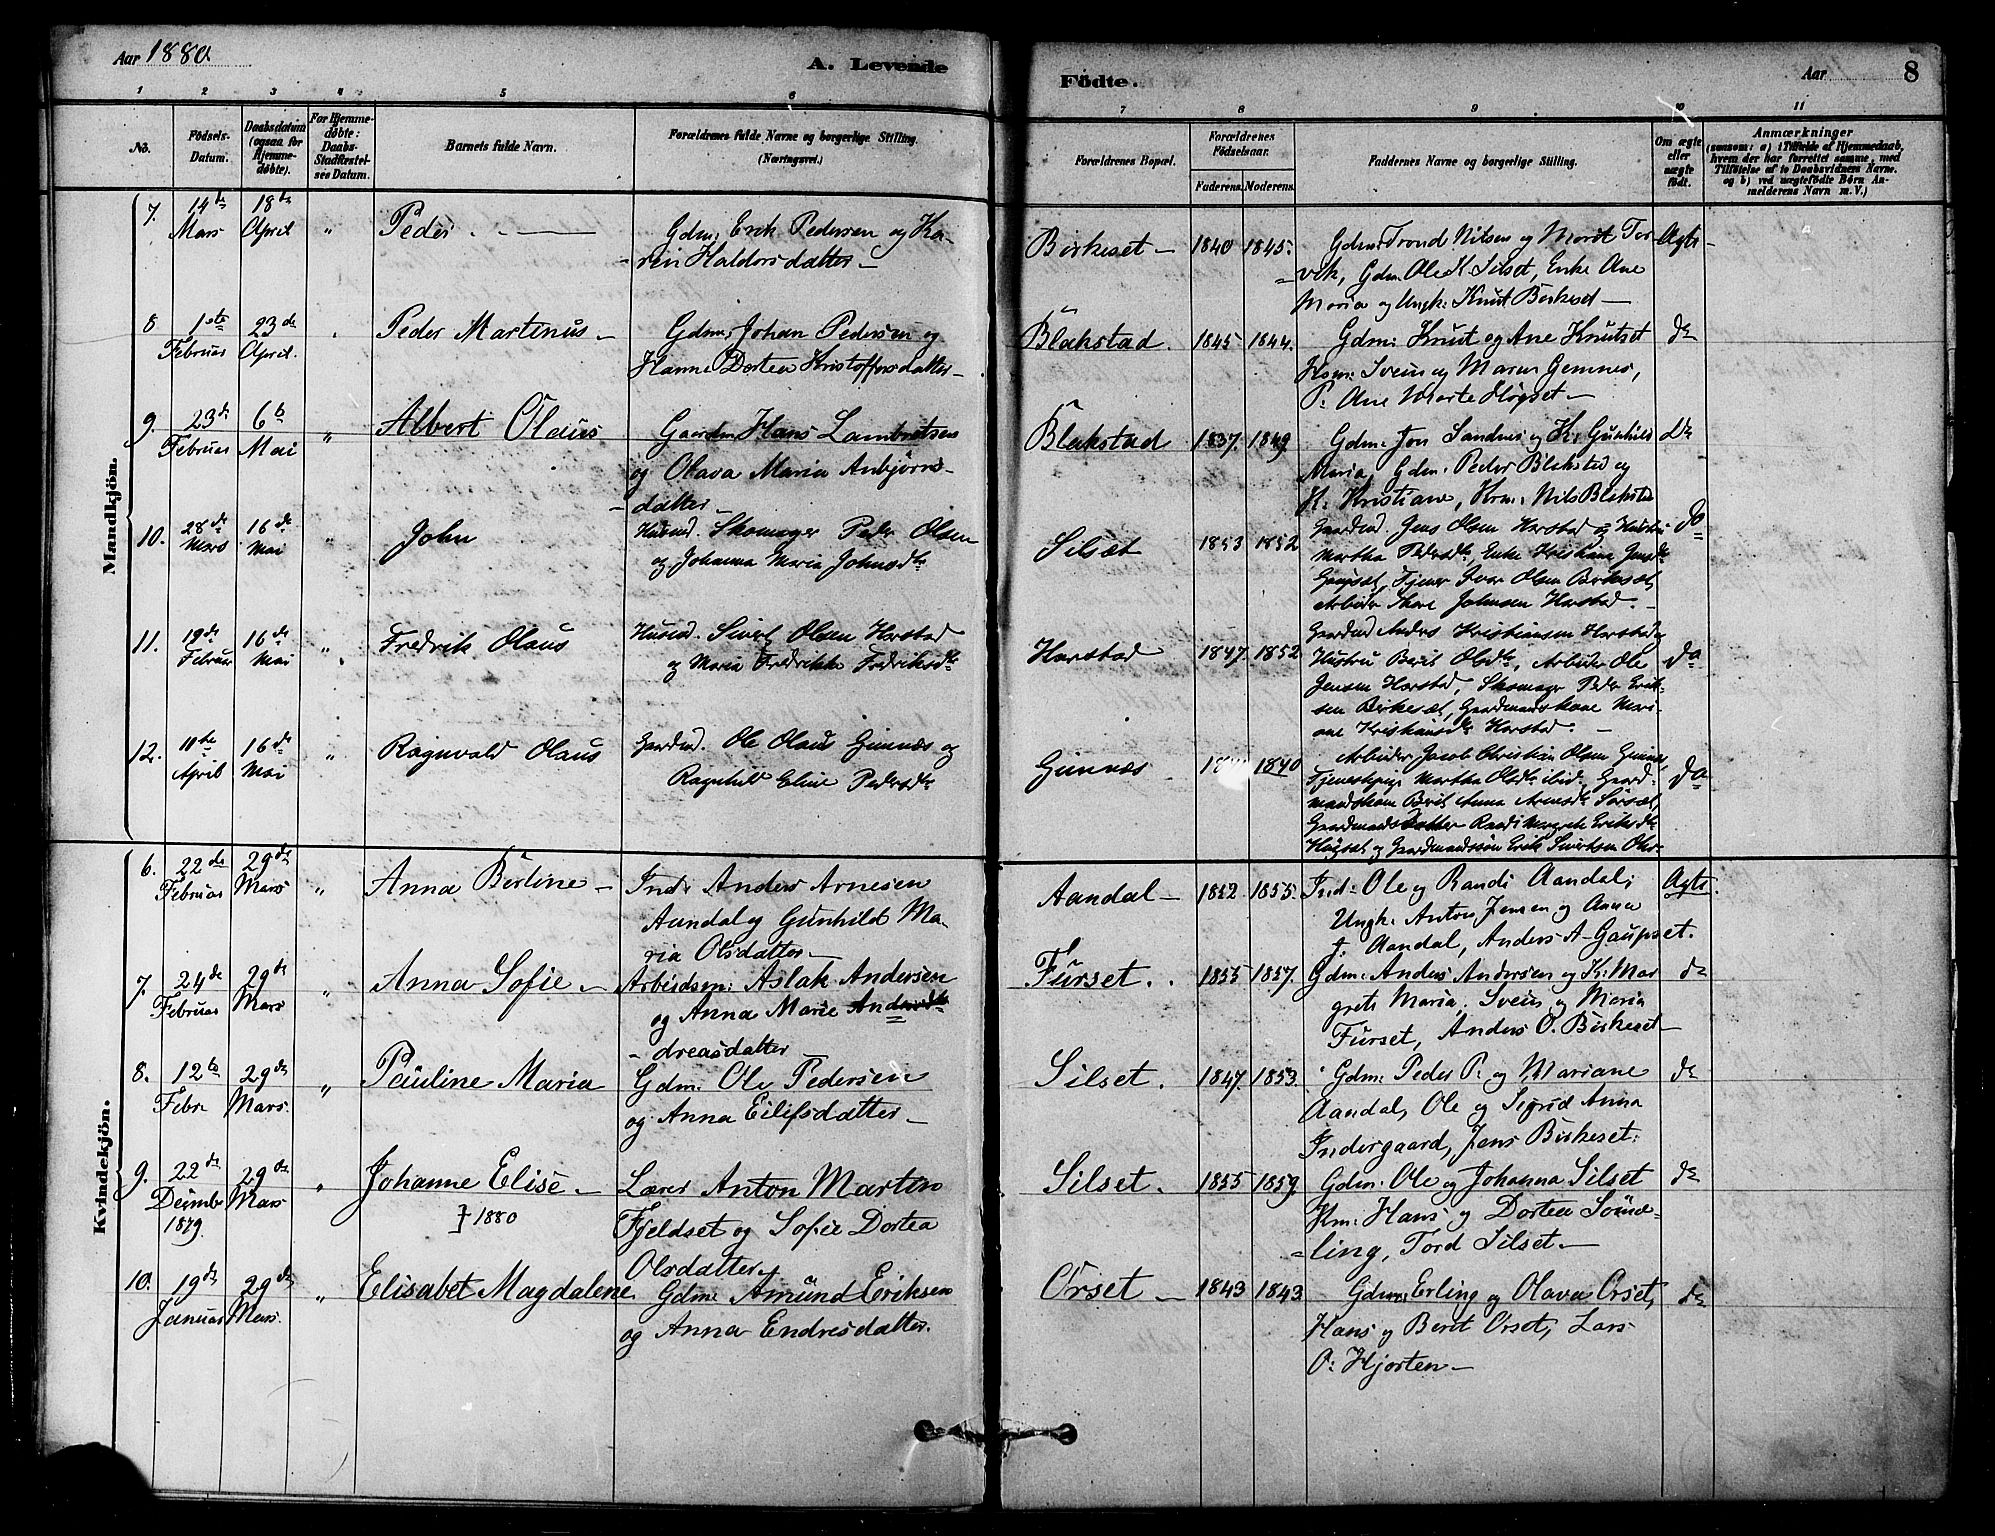 Aar 1880.
A. Levende
1 2 3 4 5 6
No.
Födsels-
Datum.
Daabsdatum
(ogsaa for
Hjemme-
döbte).
For Hjemme-
döbte:
Daabs-
Stadfæstel-
ses Datum.
Barnets fulde Navn.
Forældrenes fulde Navne og borgerlige Stilling.
(Næringsvei.)
Mandkjön.
7. 14de Mars 18de April " Peder
Gdm: Erik Pedersen og Ka-
ren Haldorsdatter
8 1ste Februar 23de April. Peder Martinus
Gdm: Johan Pedersen og
Hanne Dortea Kristoffersdatter
9. 23de Februar 6te Mai " Albert Olaus
Gaardm Hans Lambretsen
og Olava Maria Anbjörns-
datter
10. 28de Mars 16de Mai " John
Husmd. Skomager Peder Olsen
og Johanna Maria Johnsdtr
11. 19de Februar 16de Mai " Fredrik Olaus
Husmd. Sivert Olsen Harstad
og Maria Fredrikke Fredriksdtr
12. 11te April 16de Mai " Ragnvald Olaus
Gaardmd. Ole Olaus Gimnæs og
Ragnhild Eline Pedersdtr
Kvindekjön.
6. 22de Februar 29de Mars " Anna Berline
Inds: Anders Arnesen
Aandal og Gunhild Ma-
ria Olsdatter
7. 24de Februar 29de Mars " Anna Sofie
Arbeidsm: Aslak Andersen
og Anna Marie An-
dreasdatter
8. 12te Febr 29de Mars. " Pauline Maria
Gdm: Ole Pedersen
og Anna Eilifsdatter
9. 22de Decmbr 1879. 29de Mars " Johanne Elise
1880
Lærer Anton Martin
Fjeldset og Sofie Dortea
Olsdatter
10. 19de Januar 29de Mars. " Elisabet Magdalene
Gdm: Amund Eriksen
og Anna Endresdatter.
Födte.
Aar
8
7 8 9 10 11
Forældrenes Bopæl.
Forældrenes
Födselsaar.
Faderens. Moderens.
Faddernes Navne og borgerlige Stilling.
Om ægte
eller
uægte
födt.
Anmærkninger
(saasom: a) i Tilfælde af Hjemmedaab,
hvem der har forrettet samme, med
Tilföielse af to Daabsvidners Navne.
og b) ved uægtefödte Börn An-
melderens Navn m. V.)
Birkeset 1840 1845.
Gdm: Trond Nilsen og Marit Tor- Ægte
vik, Gdm. Ole K. Silset, Enke Ane
Maria og Ungk: Knut Birkeset
Blakstad 1845 1844.
Gdm: Knut og Ane Knutset do
Hsm: Svein og Maren Gemnes,
P: Ane Marte Högset
Blakstad 1837. 1849.
Gdm: Jon Sandnes og K: Gunhild do
Maria, Gdm. Peder Blakstad og
K. Kristiane, Hsm: Nils Blakstad
Silsæt 1853 1852
Gaardmd. Jens Olsen Harstad og Hustru do
Martha Pedersdtr, Enke Kristiane Jensdtr
Gaupsæt, Tjener Ivar Olsen Birkesæt,
Arbeider Thore Johnsen Harstad.
Harstad 1847. 1852
Gaardmd Anders Kristiansen Harstad og
Hustru Berit Olsdtr, Arbeider Ole do
Jensen Harstad, Skomager Peder Erik-
sen Birkesæt, Gaardmandskone Mari-
ane Kristiansdtr Harstad.
Gimnæs 1840
Arbeider Jacob Christian Olsen Gimnæs,
Tjenestepige Martha Olsdtr ibid, Gaard- do
mandskone Berit Anna Arnesdtr Sörsæt,
Gaardmandsdatter Randi Margrete Eriksdtr
Högsæt og Gaardmandssön Erik Sivertsen
Aandal 1852 1855.
Ind: Ole og Randi Aandal; Ægte.
Ungk. Anton Jensen og Anna
J. Aandal, Anders A. Gaupset.
Furset. 1855 1857.
Gdm: Anders Andersen og K: Mar do
grete Maria, Svein og Maria
Furset, Anders O. Birkeset
Silset. 1847. 1853.
Gdm: Peder P. og Mariane do
Aandal, Ole og Sigrid Anna
Indergaard, Jens Birkeset.
Silset. 1855 1859.
Gdm: Ole og Johanna Silset do
Km: Hans og Dortea Sönd-
ling, Tord Silset.
Orset 1843 1843
Gdm: Erling og Olava Orset, do
Hans og Beret Orset, Lars
O: Hjorten